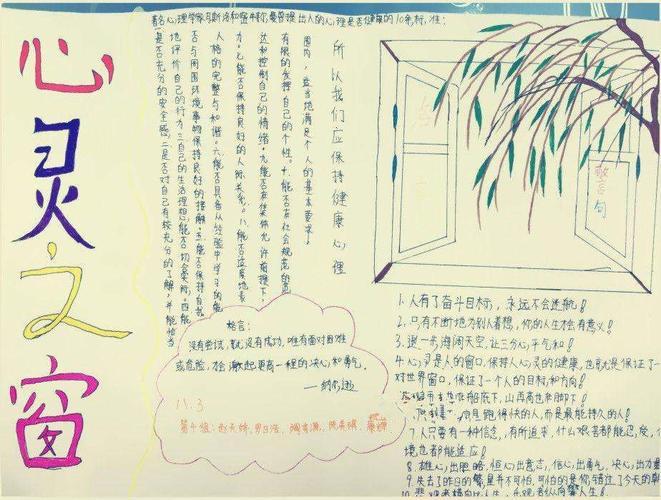 心灵之窗
著名心理学家马斯洛和密尔
出人的心理是否健康的10条标准：
一是否充分的安全感，二是否对自己有较充分的了解，并能恰当
地评价自己的行为三自己的生活理想能否切合实际，四能
否与周围环境事物保持良好的接触，五能否保持自我
人格的完整与和谐。六能否具备从经验中学习的能
力。七能否保持良好的人际关系。八能否适度地表
达和控制自己的情绪。九能否在集体允许前提下，
有限的发挥自己的个性。十能否在社会规范的范
围内，适当地满足个人的基本要求。
所以我们应保持健康心理
警言句
格言：
没有尝试，就没有成功，唯有面对困难
或危险，才会激起更高一程的决心和勇气。
11.3
第十组：
1.人有了奋斗目标，永远不会迷航！
2.只有不断地为别人着想，你的人生才会有意义！
3.退一步海阔天空，让三分心平气和！
4.心灵是人的窗口，保持人心灵的健康，也就是保证了一
对世界窗口，保证了一个人的目标和方向！
山再高也在脚下！
跑得快的人，而是最能持久的人！
7.人只要有一种信念，有所追求，什么艰苦都能忍受，
境也都能适应！
8.雄心出胆略，恒心出意志，信心出勇气，决心出力量
9.失去了昨日的
并不可怕，可怕的是你错过了今天的
10